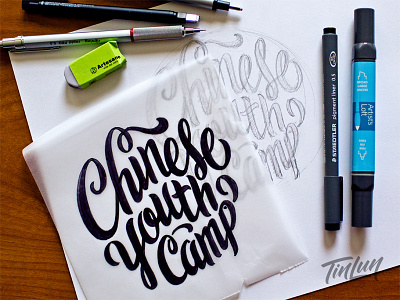 Artesano
Chinese
Youth
Camp
Chinese
Youth
Camp
STAEDTLER pigment liner 0.5
Artist's
Loft
Tinlun